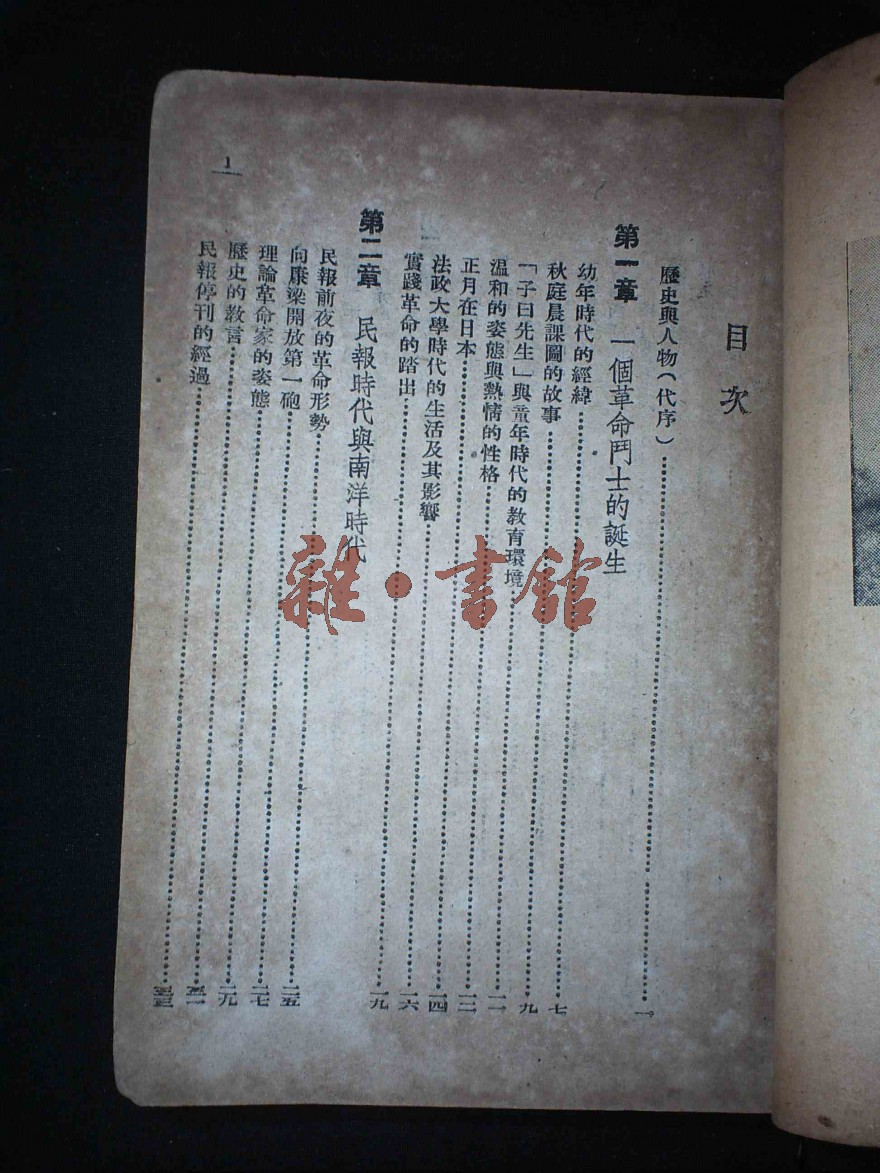 目次
歷史與人物(代序)………一
第一章 一個革命鬥士的誕生
幼年時代的經緯………七
秋庭晨課圖的故事………九
「子曰先生」與童年時代的教育環境………一一
溫和的姿態與熱情的性格………
正月在日本………一四
法政大學時代的生活及其影響………一六
實踐革命的踏出………一九
第二章 民報時代與南洋時代
民報前夜的革命形勢………二五
向康梁開放第一砲………二七
理論革命家的姿態………二九
歷史的教言………
民報停刊的經過………
1
雜·書館